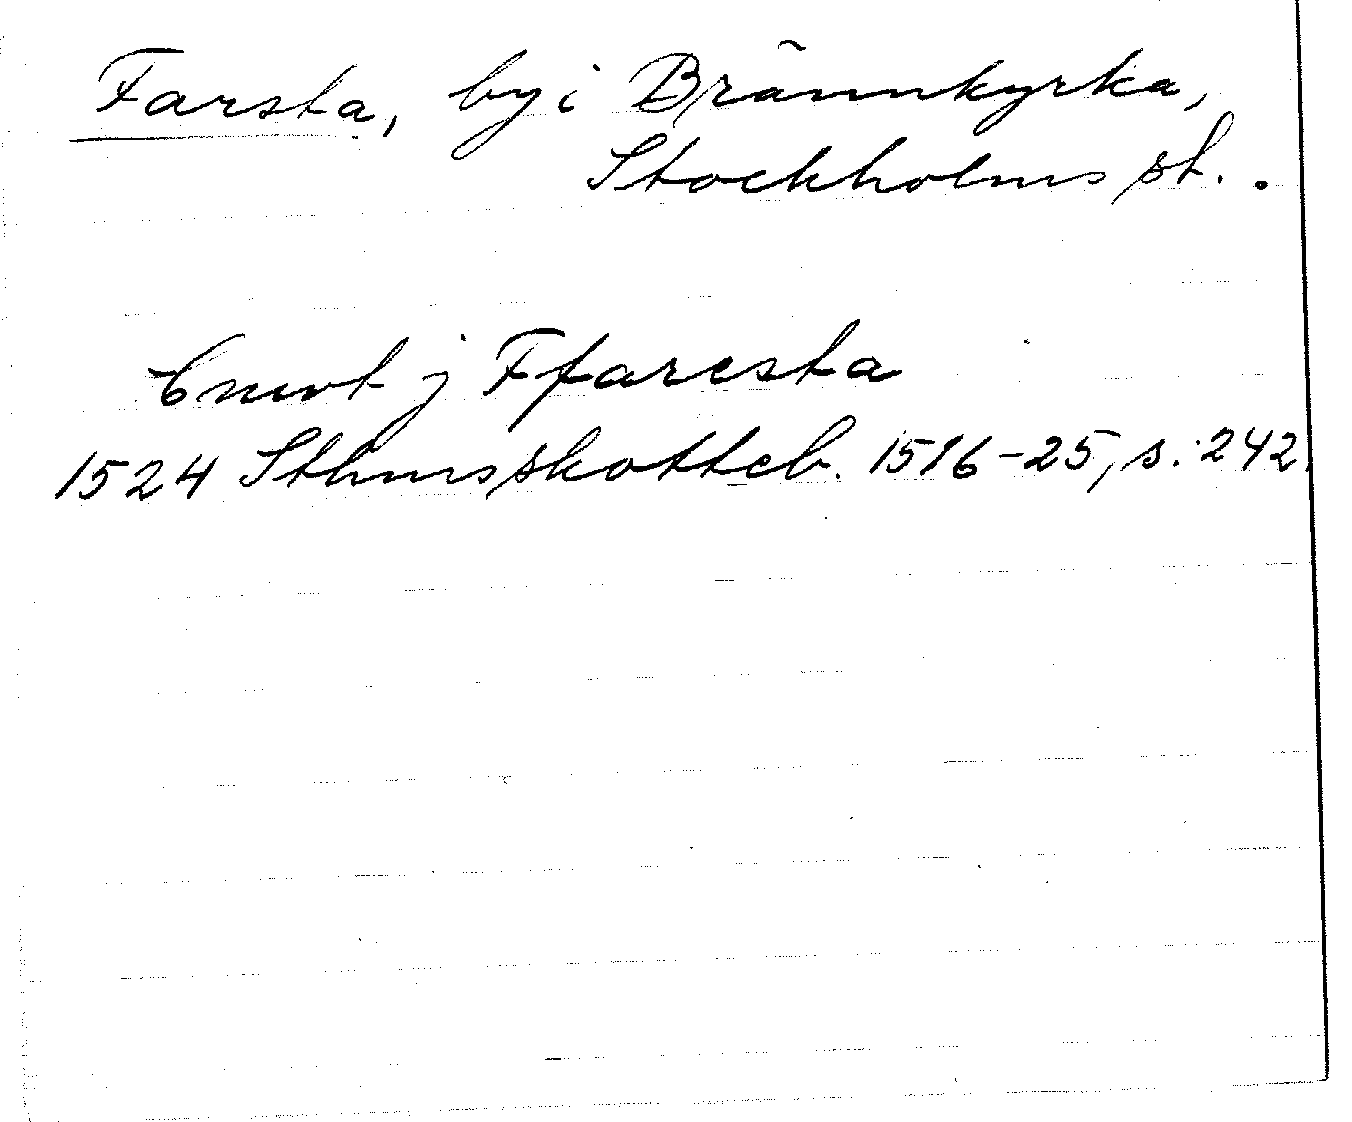 Farsta, by i Brännkyrka,
Stockholms st. .
Cnwt j Ffaresta
1524 Sthms skotteb. 1516-25, s. 242.